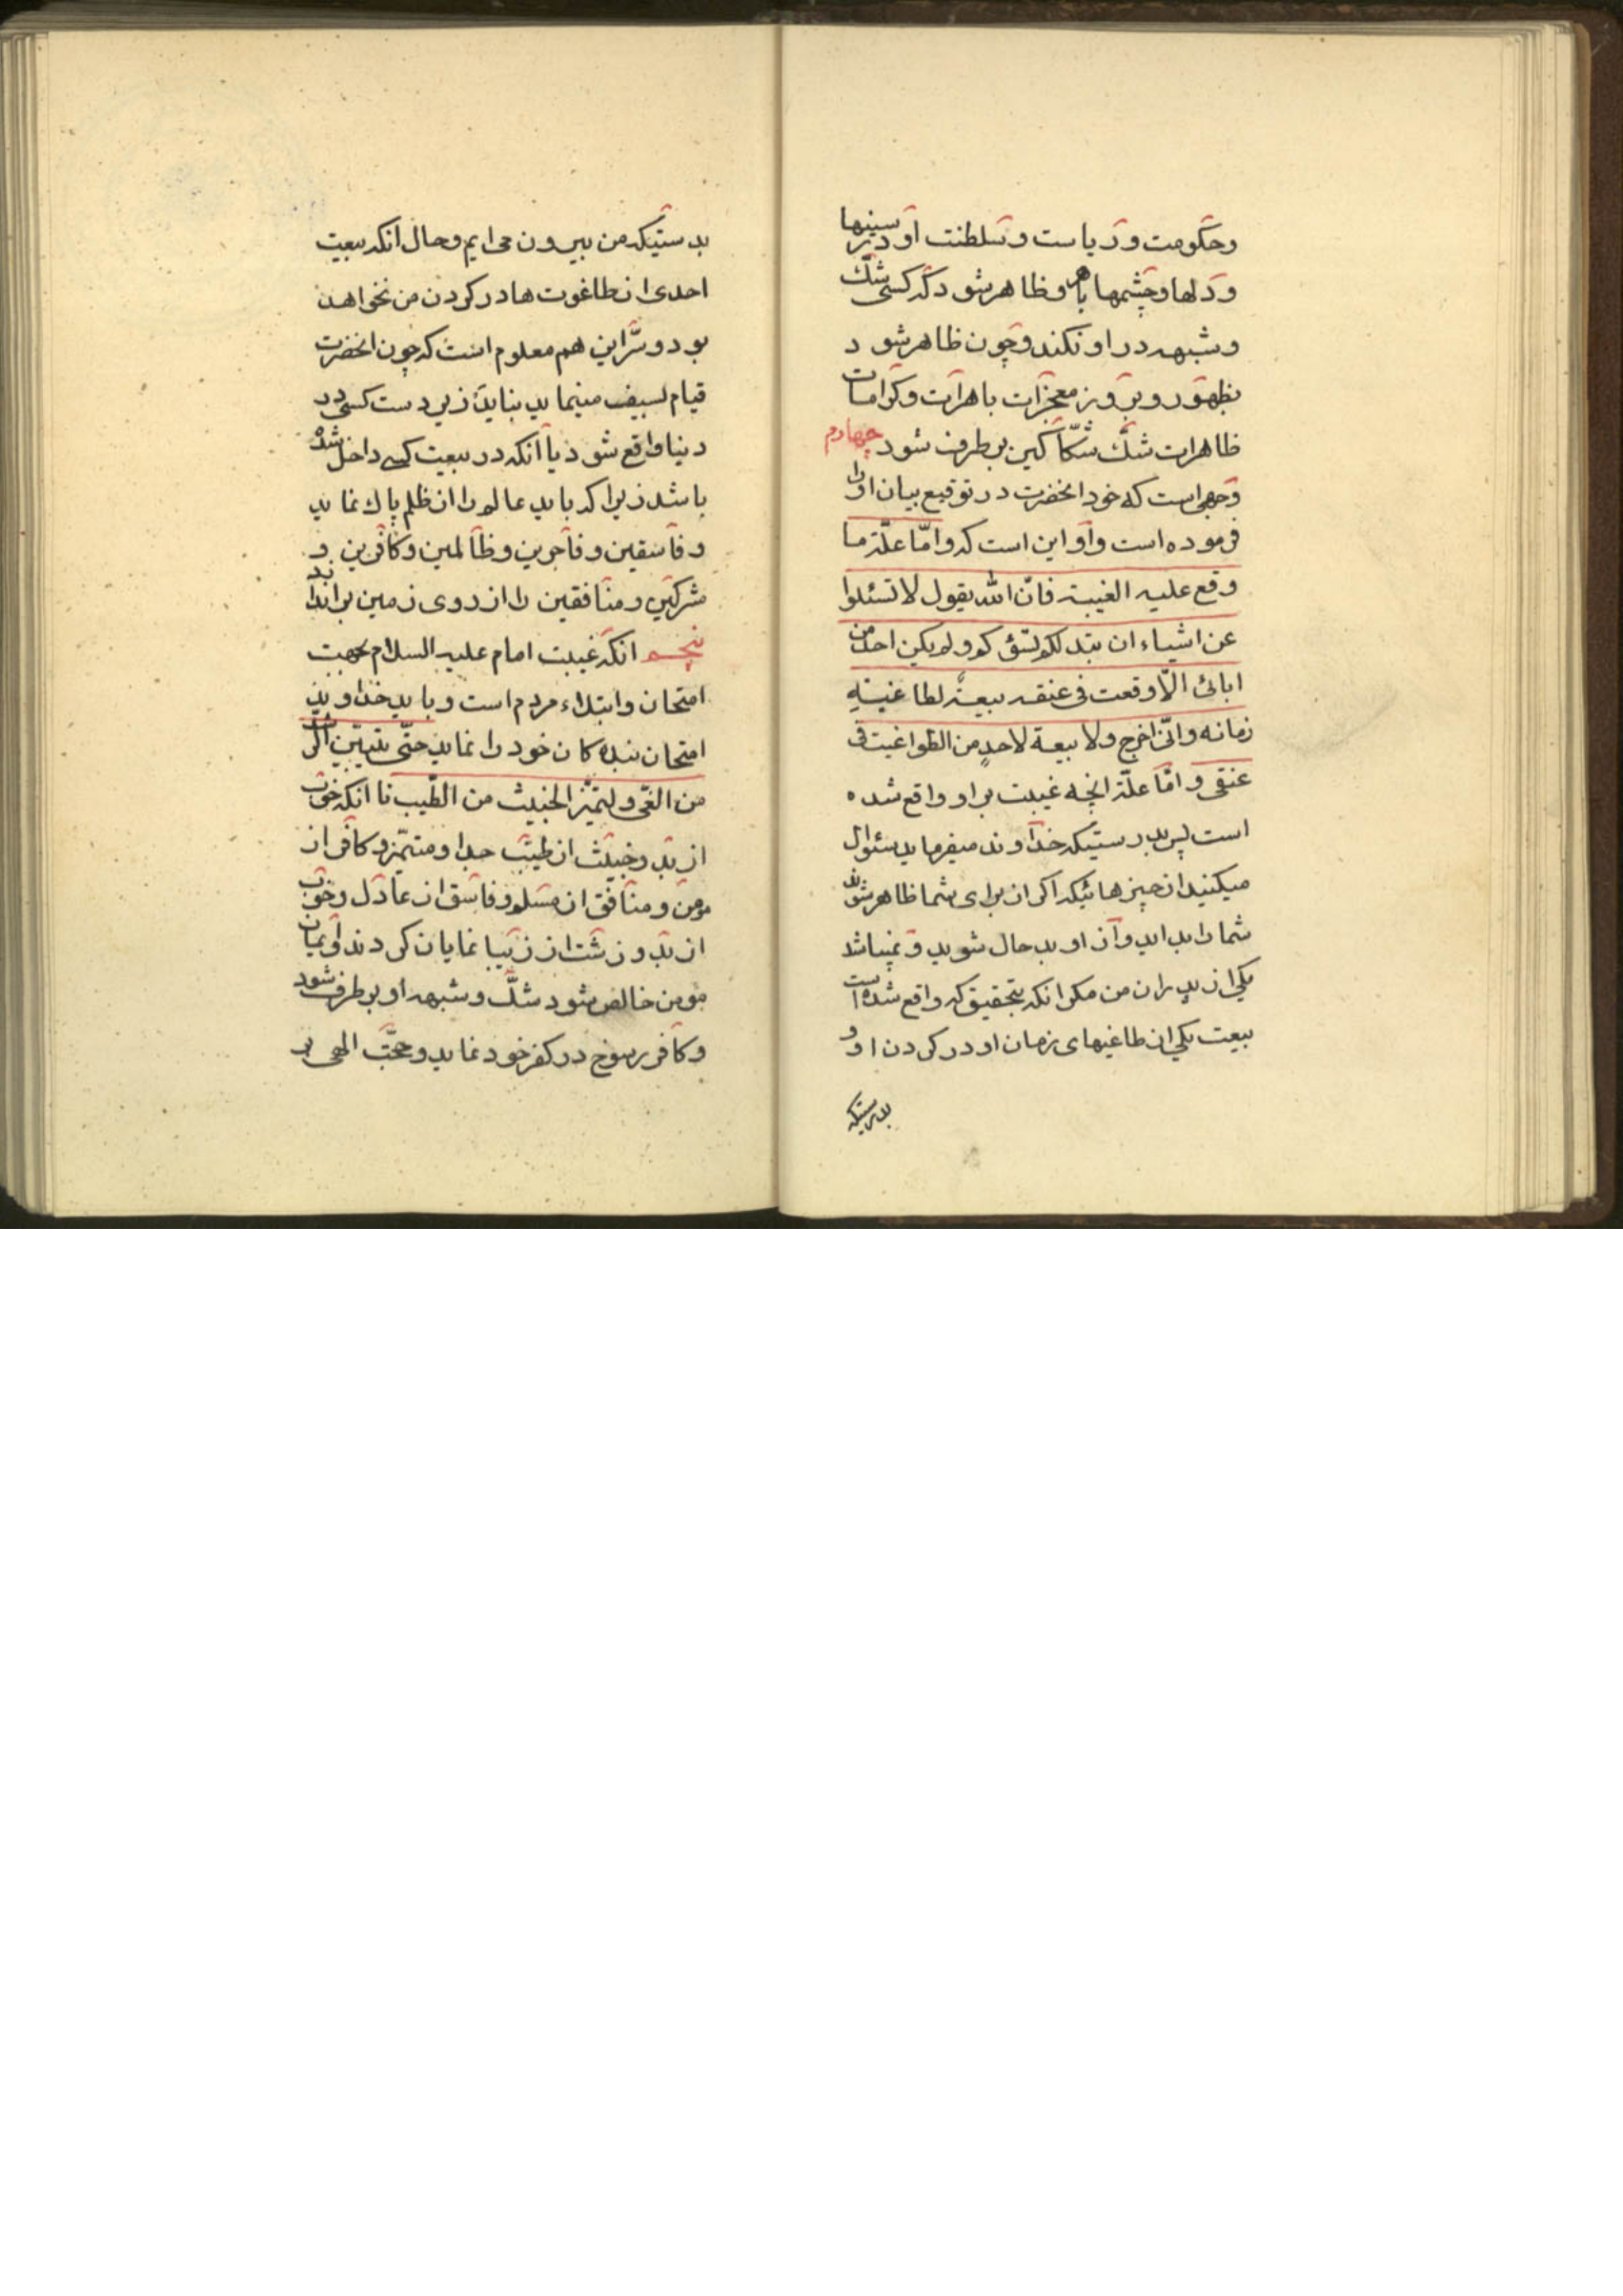 وحکومت و ریاست و سلطنت او در سینها
و دلها و چشمها باهر و ظاهر شود که کسی شک
و شبهه در او نکند و چون ظاهر شود
بظهور و بروز معجزات باهرات و کرامات
ظاهرات شک شکاکین بر طرف شود چهارم
وجهی است که خود انحضرت در توقیع بیان او را
فرموده است و او این است که و امّا علّة ما
وقع علیه الغیبة فانّ الله یقول لا تسئلوا
عن اشیاء ان تبد لکم تسؤکم و لم یکن احد من
ابائی الّا وقعت فی عنقه بیعة لطاغیة
زمانه و انّی اخرج و لا بیعة لاحدٍ من الطواغیت فی
عنقی و امّا علّة انچه غیبت بر او واقع شده
است پس بدرستیکه خداوند میفرماید سئوال
میکنید از چیزهائیکه اکر ان برای شما ظاهر شود
شما را بد اید و از او بد حال شوید و نمیباشد
یکی از پدران من مکر انکه بتحقیق که واقع شده است
بیعت یکی از طاغیهای زمان او در کردن او و
بدرستیکه
بدستیکه من بیرون می ایم و حال انکه بیعت
احدی از طاغوت ها در کردن من نخواهد
بود و سرّ این هم معلوم است که چون انحضرت
قیام بسیف مینماید نباید زیر دست کسی در
دنیا واقع شود یا آنکه در بیعت کسی داخل شده
باشد زیرا که باید عالم را از ظلم پاک نماید
و فاسقین و فاجرین و ظالمین و کافرین و
مشرکین و منافقین را از روی زمین براندازد
پنجم انکه غیبت امام علیه السلام بجهت
امتحان و ابتلاء مردم است و باید خداوند
امتحان بنده کان خود را نماید حتّی یتبیّن الرشد
من الغی و لیتمیّز الخبیث من الطّیب تا انکه خوب
از بد و خبیث از طیّب جدا و متمیّز و کافر از
مومن و منافق از مسلم و فاسق از عادل و خوب
از بد و زشت از زیبا نمایان کردند و ایمان
مومن خالص شود شکّ و شبهه او بر طرف شود
و کافر رسوخ در کفر خود نماید و حجّت الهی بر